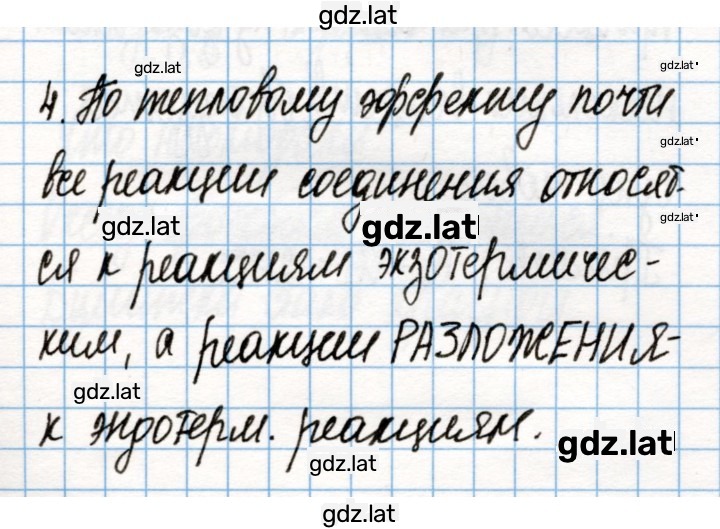 gdz.lat
gdz.lat gdz.lat
4. По тепловому эффекту почти
gdz.lat
все реакции соединения относят-
gdz.lat gdz.lat gdz.lat
ся к реакциям экзотермичес-
ким, а реакции РАЗЛОЖЕНИЯ-
gdz.lat
к эндотерм. реакциям.
gdz.lat gdz.lat
gdz.lat